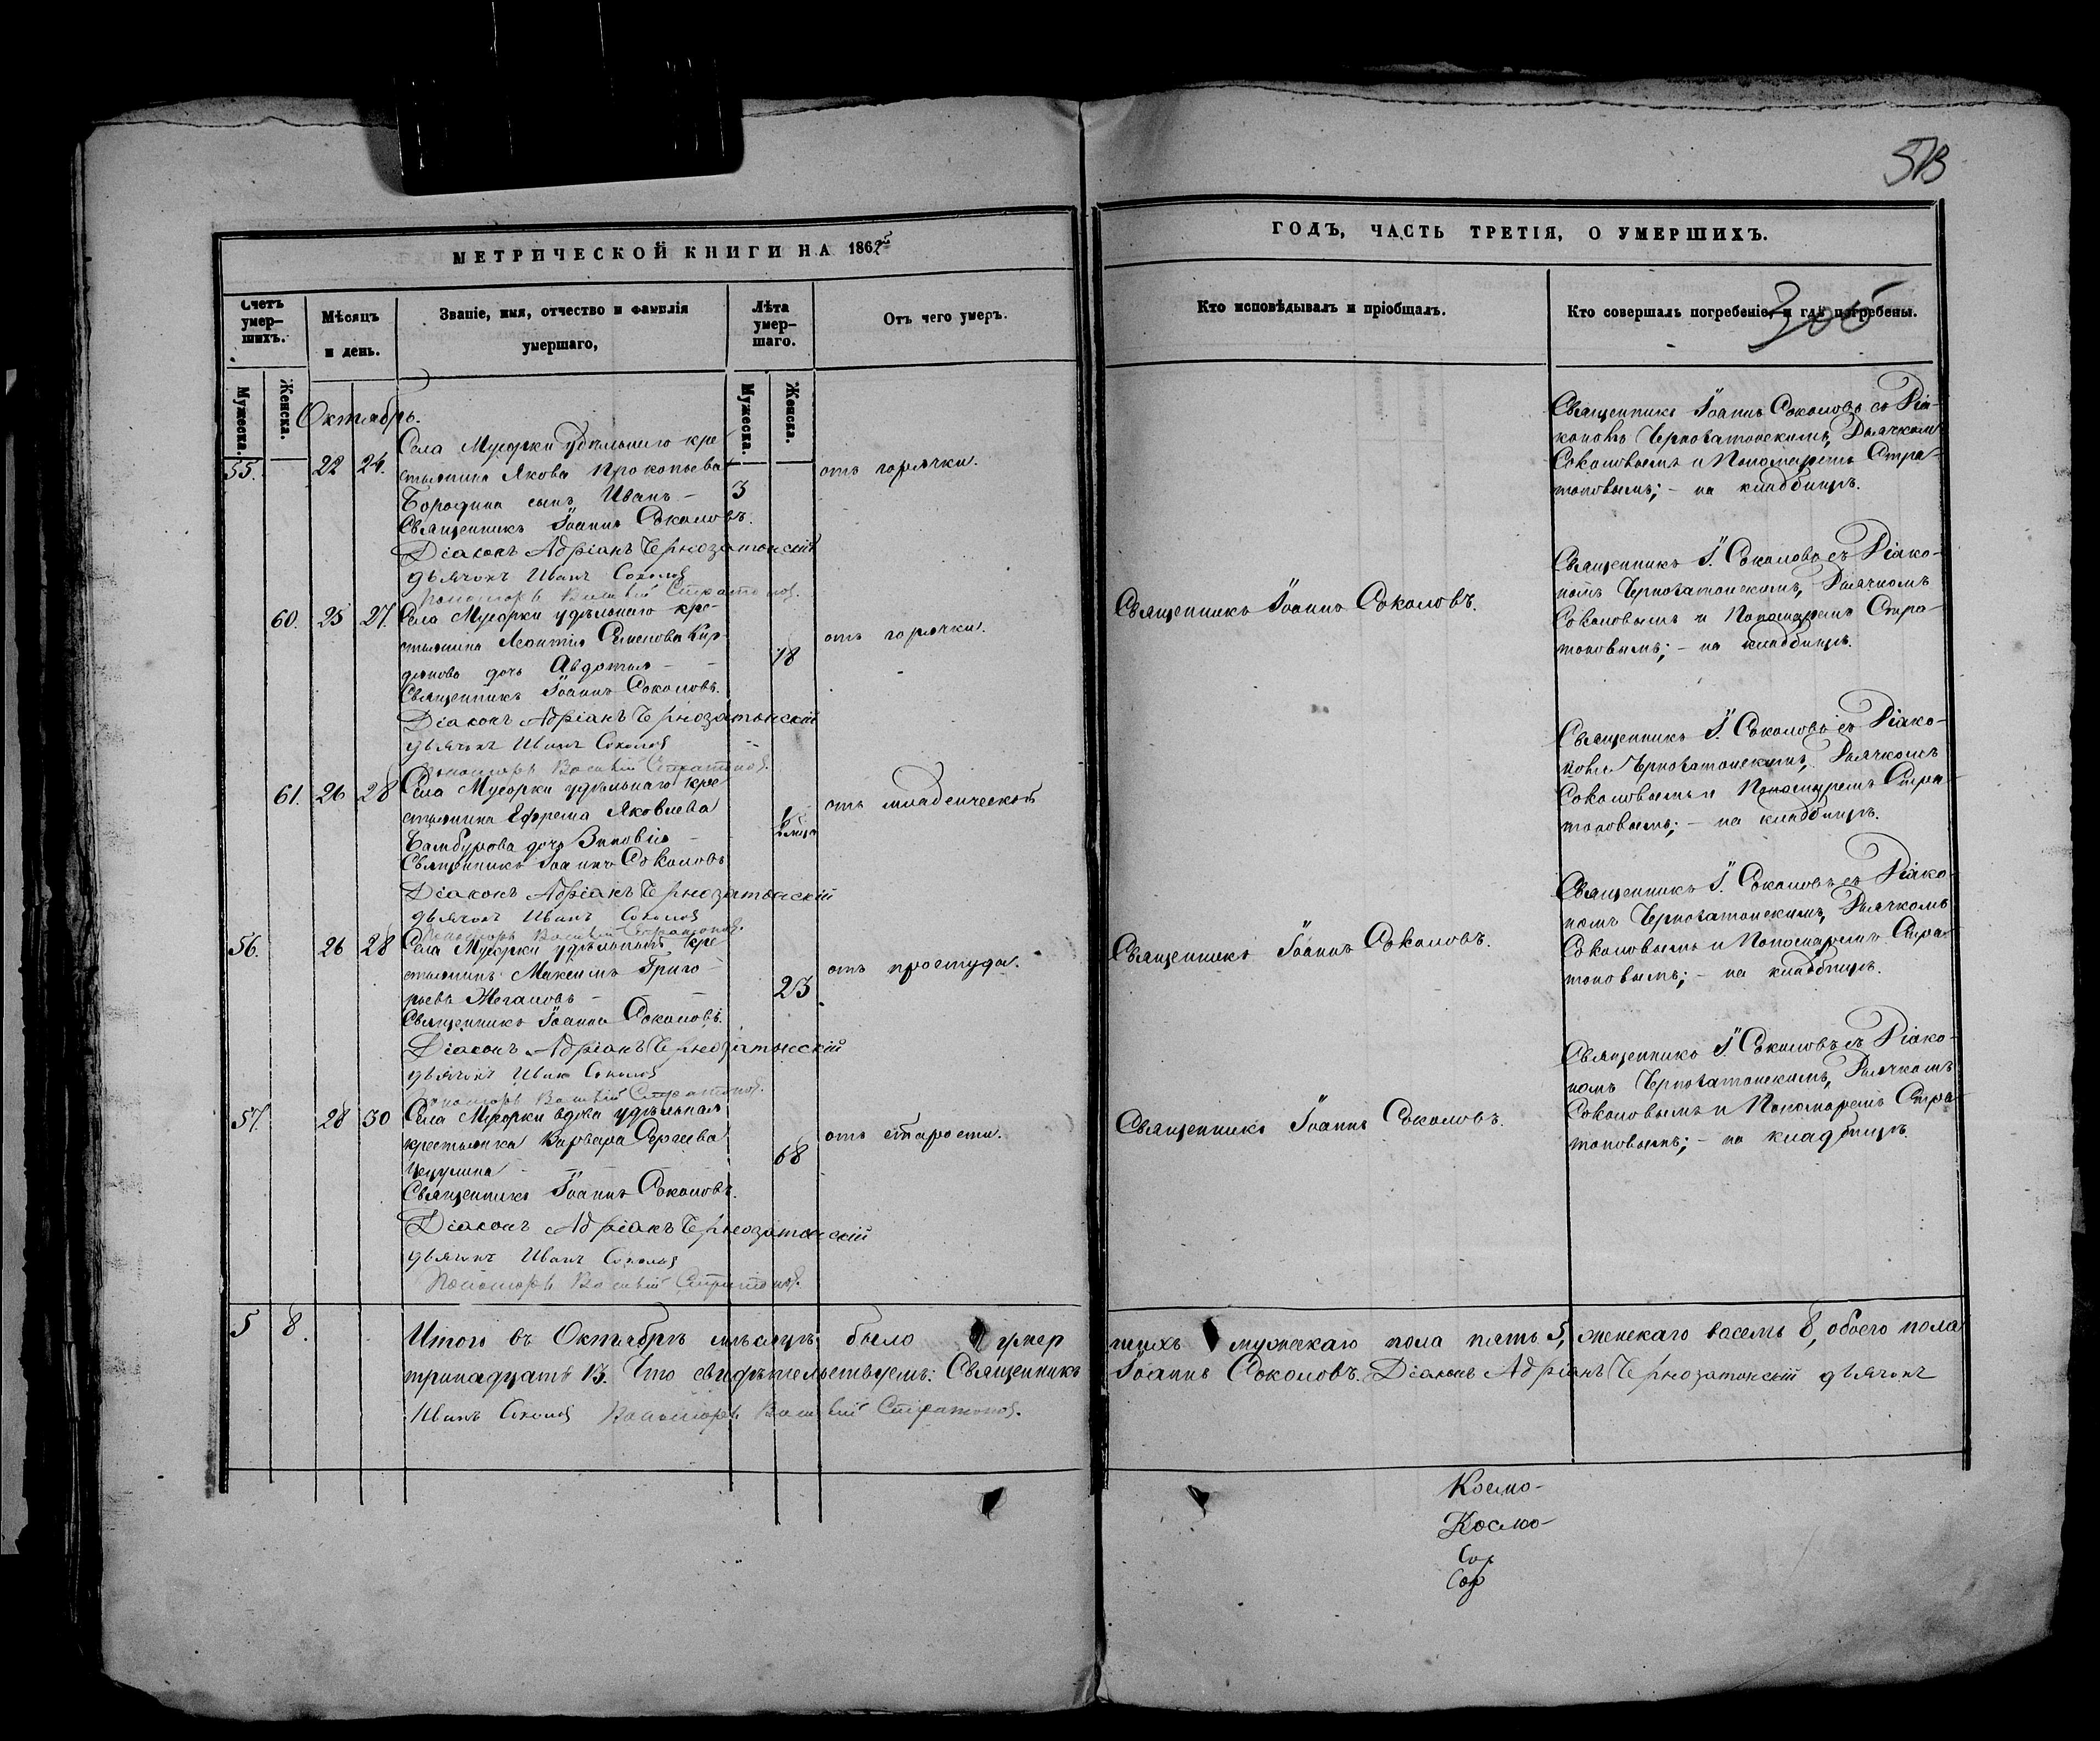 513
МЕТРИЧЕСКОЙ КНИГИ НА 1862й
ГОДЪ, ЧАСТЬ ТРЕТІЯ, О УМЕРШИХЪ.
Счетъ умер-
шихъ.
Мѣсяцъ
и день.
Званіе, имя, отчество и фамилія
умершаго,
Лѣта
умер-
шаго.
Отъ чего умеръ.
Кто исповѣдывалъ и пріобщалъ.
Кто совершалъ погребеніе, и гдѣ погребены.
305
Мужеска.
Женска.
Мужеска.
Женска.
Октябрь.
55. 22 24.
Села Мусорки удѣльнаго кре-
стьянина Якова Прокопьева
Бородина сынъ Иванъ –
3
отъ горячки.
Священникъ Іоаннъ Соколовъ.
Діаконъ Адріанъ Чернозатонскій
дьячокъ Иванъ Соколов
пономарь Василій Стратонов.
Священникъ Іоаннъ Соколовъ съ Діа-
кономъ Чернозатонскимъ, Дьячкомъ
Соколовымъ и Пономаремъ Стра-
тоновымъ; – на кладбищѣ.
60. 25 27.
Села Мусорки удѣльнаго кре-
стьянина Леонтія Семенова Кир-
дянова дочь Авдотья – –
18
отъ горячки.
Священникъ Іоаннъ Соколовъ.
Діаконъ Адріанъ Чернозатонскій
дьячокъ Иванъ Соколов
пономарь Василій Стратонов.
Священникъ Іоаннъ Соколовъ.
Священникъ І. Соколовъ съ Діако-
номъ Чернозатонскимъ, Дьячкомъ
Соколовымъ и Пономаремъ Стра-
тоновымъ; – на кладбищѣ.
61. 26 28
Села Мусорки удѣльнаго кре-
стьянина Ефрема Яковлева
Бамбурова дочь Зиновія –
отъ младенческой
Священникъ Іоаннъ Соколовъ
Діаконъ Адріанъ Чернозатонскій
дьячокъ Иванъ Соколов
Пономарь Василій Стратонов.
Священникъ І. Соколовъ съ Діако-
номъ Чернозатонскимъ, Дьячкомъ
Соколовымъ и Пономаремъ Стра-
тоновымъ; – на кладбищѣ.
56. 26 28
Села Мусорки удѣльный кре-
стьянинъ Максимъ Григо-
рьевъ Жегаловъ – –
23
отъ простуды.
Священникъ Іоаннъ Соколовъ.
Діаконъ Адріанъ Чернозатонскій
дьячокъ Иванъ Соколов
пономарь Василій Стратонов.
Священникъ Іоаннъ Соколовъ.
Священникъ І. Соколовъ съ Діако-
номъ Чернозатонскимъ, Дьячкомъ
Соколовымъ и Пономаремъ Стра-
тоновымъ; – на кладбищѣ.
57. 28 30
Села Мусорки вдова удѣльная
крестьянка Варвара Сергеева
68
отъ старости.
Священникъ Іоаннъ Соколовъ.
Діаконъ Адріанъ Чернозатонскій
дьячокъ Иванъ Соколов
Пономарь Василій Стратонов.
Священникъ Іоаннъ Соколовъ.
Священникъ І. Соколовъ съ Діако-
номъ Чернозатонскимъ, Дьячкомъ
Соколовымъ и Пономаремъ Стра-
тоновымъ; – на кладбищѣ.
5 8.
Итого въ Октябрѣ мѣсяцѣ было умер шихъ мужескаго пола пять 5, женскаго восемь 8, обоего пола
тринадцать 13. Что свидѣтельствуемъ: Священникъ Іоаннъ Соколовъ. Діаконъ Адріанъ Чернозатонскій дьячокъ
Иванъ Соколов Пономарь Василій Стратонов.
Космо-
Космо-
Сор
Сор